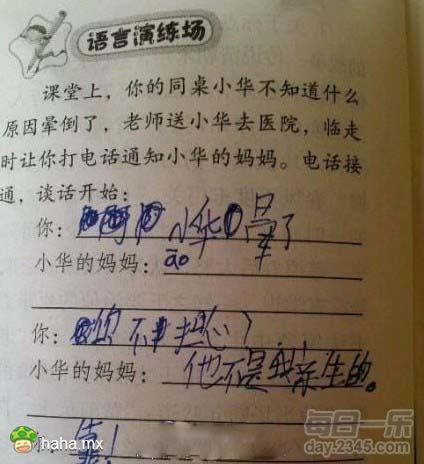 语言演练场
课堂上，你的同桌小华不知道什么
原因晕倒了，老师送小华去医院，临走
时让你打电话通知小华的妈妈。电话接
通，谈话开始：
你：小华晕了
小华的妈妈：āo
你：你不担心？
小华的妈妈：他不是我亲生的。
靠！
haha.mx
每日一乐
day.2345.com